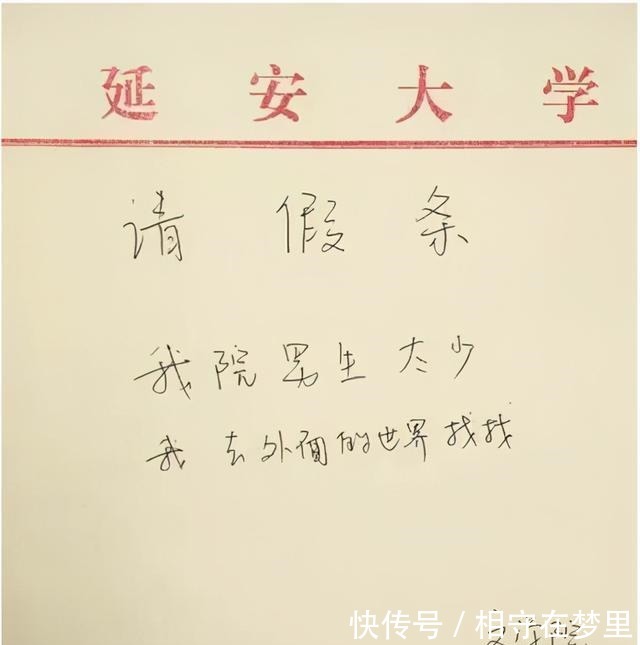 延安大学
请假条
我院男生太少
我去外面的世界找找
快传号/相守在梦里